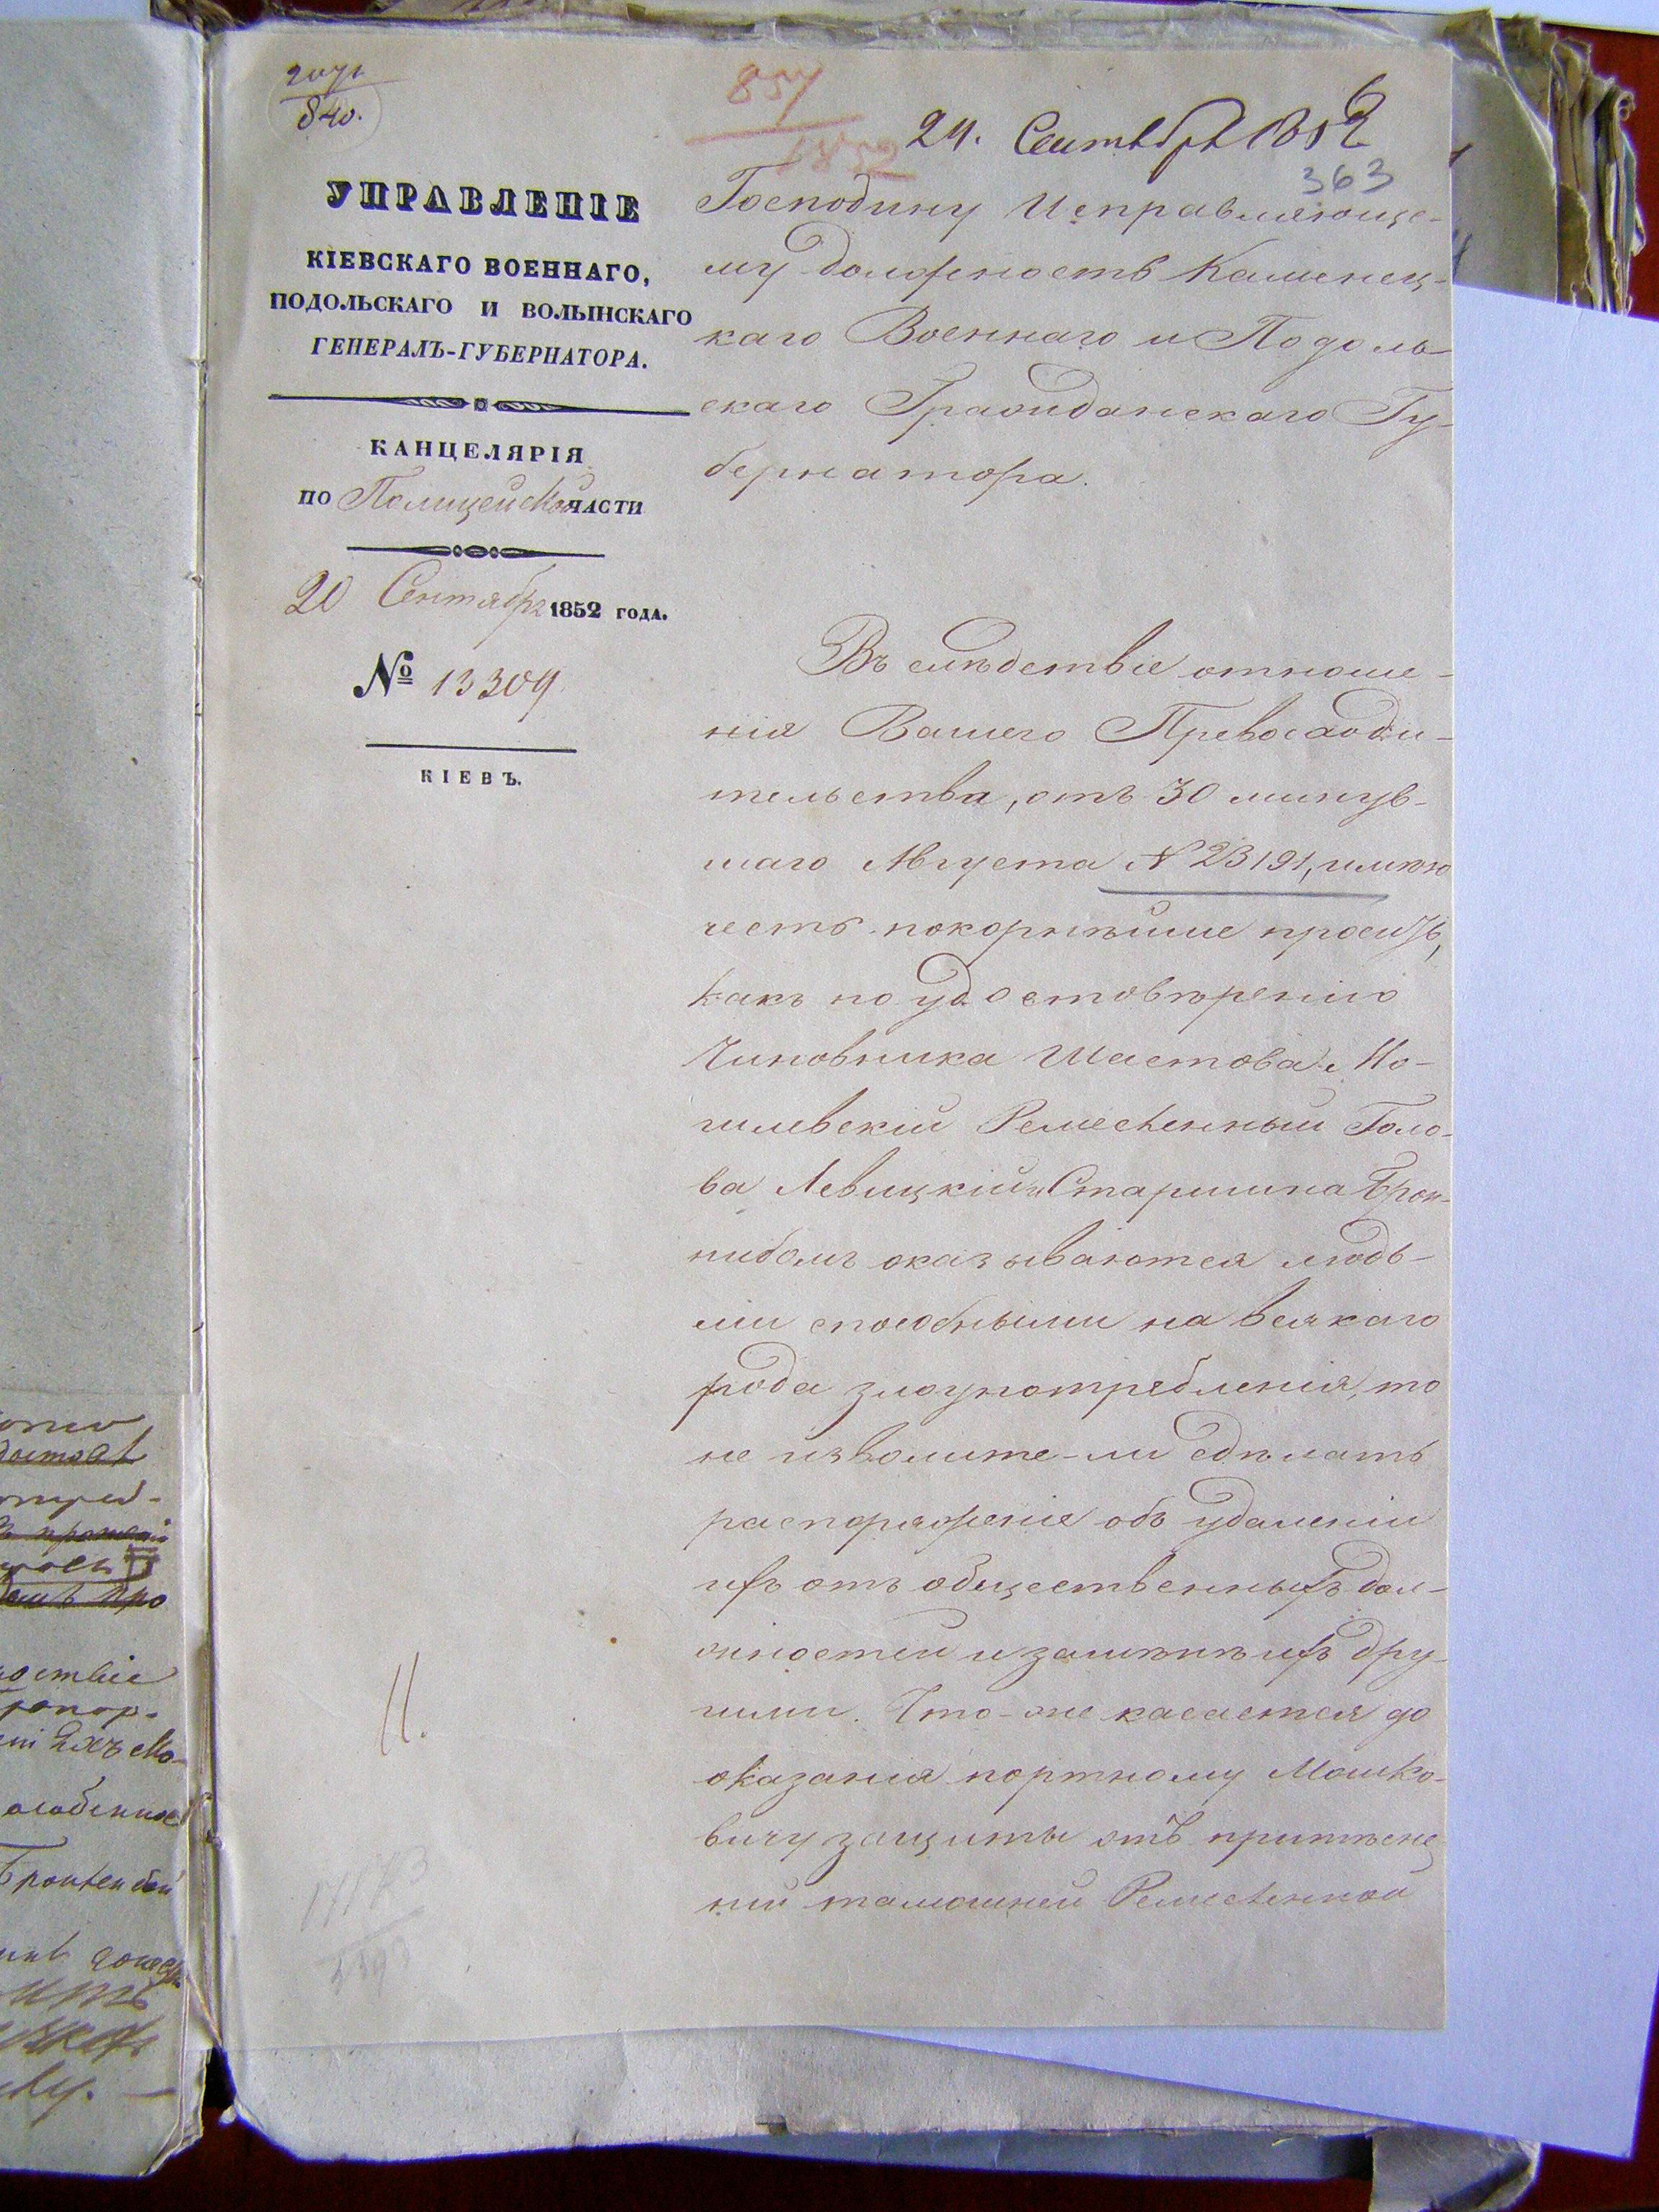 840.
1852
24. Сентября 1852
363
УПРАВЛЕНІЕ
КІЕВСКАГО ВОЕННАГО,
ПОДОЛЬСКАГО И ВОЛЫНСКАГО
ГЕНЕРАЛЪ-ГУБЕРНАТОРА.
КАНЦЕЛЯРІЯ
ПО Полицейской ЧАСТИ
20 Сентября 1852 ГОДА.
№ 13309
КІЕВЪ.
Господину Исправляюще-
му должность Каменец-
каго Военнаго и Подоль-
скаго Гражданскаго Гу-
бернатора.
Въ слѣдствіе отноше-
нія Вашего Превосходи-
тельства, отъ 30 минув-
шаго Августа № 23191, имѣю
честь покорнѣйше просить,
какъ по удостовѣренію
Чиновника Шастова Мо-
гилевскій Ремесленный Голо-
ва Левицкій и Старшина Брон-
оказываются людь-
ми способными на всякаго
рода злоупотребленія, то
не изволите-ли сдѣлать
распоряженіе объ удаленіи
ихъ отъ общественныхъ дол-
жностей и замѣнѣ ихъ дру-
гими. Что-же касается до
оказанія портному Мошко-
вичу защиты отъ притѣсне-
ній тамошней Ремесленной
11.
особенно